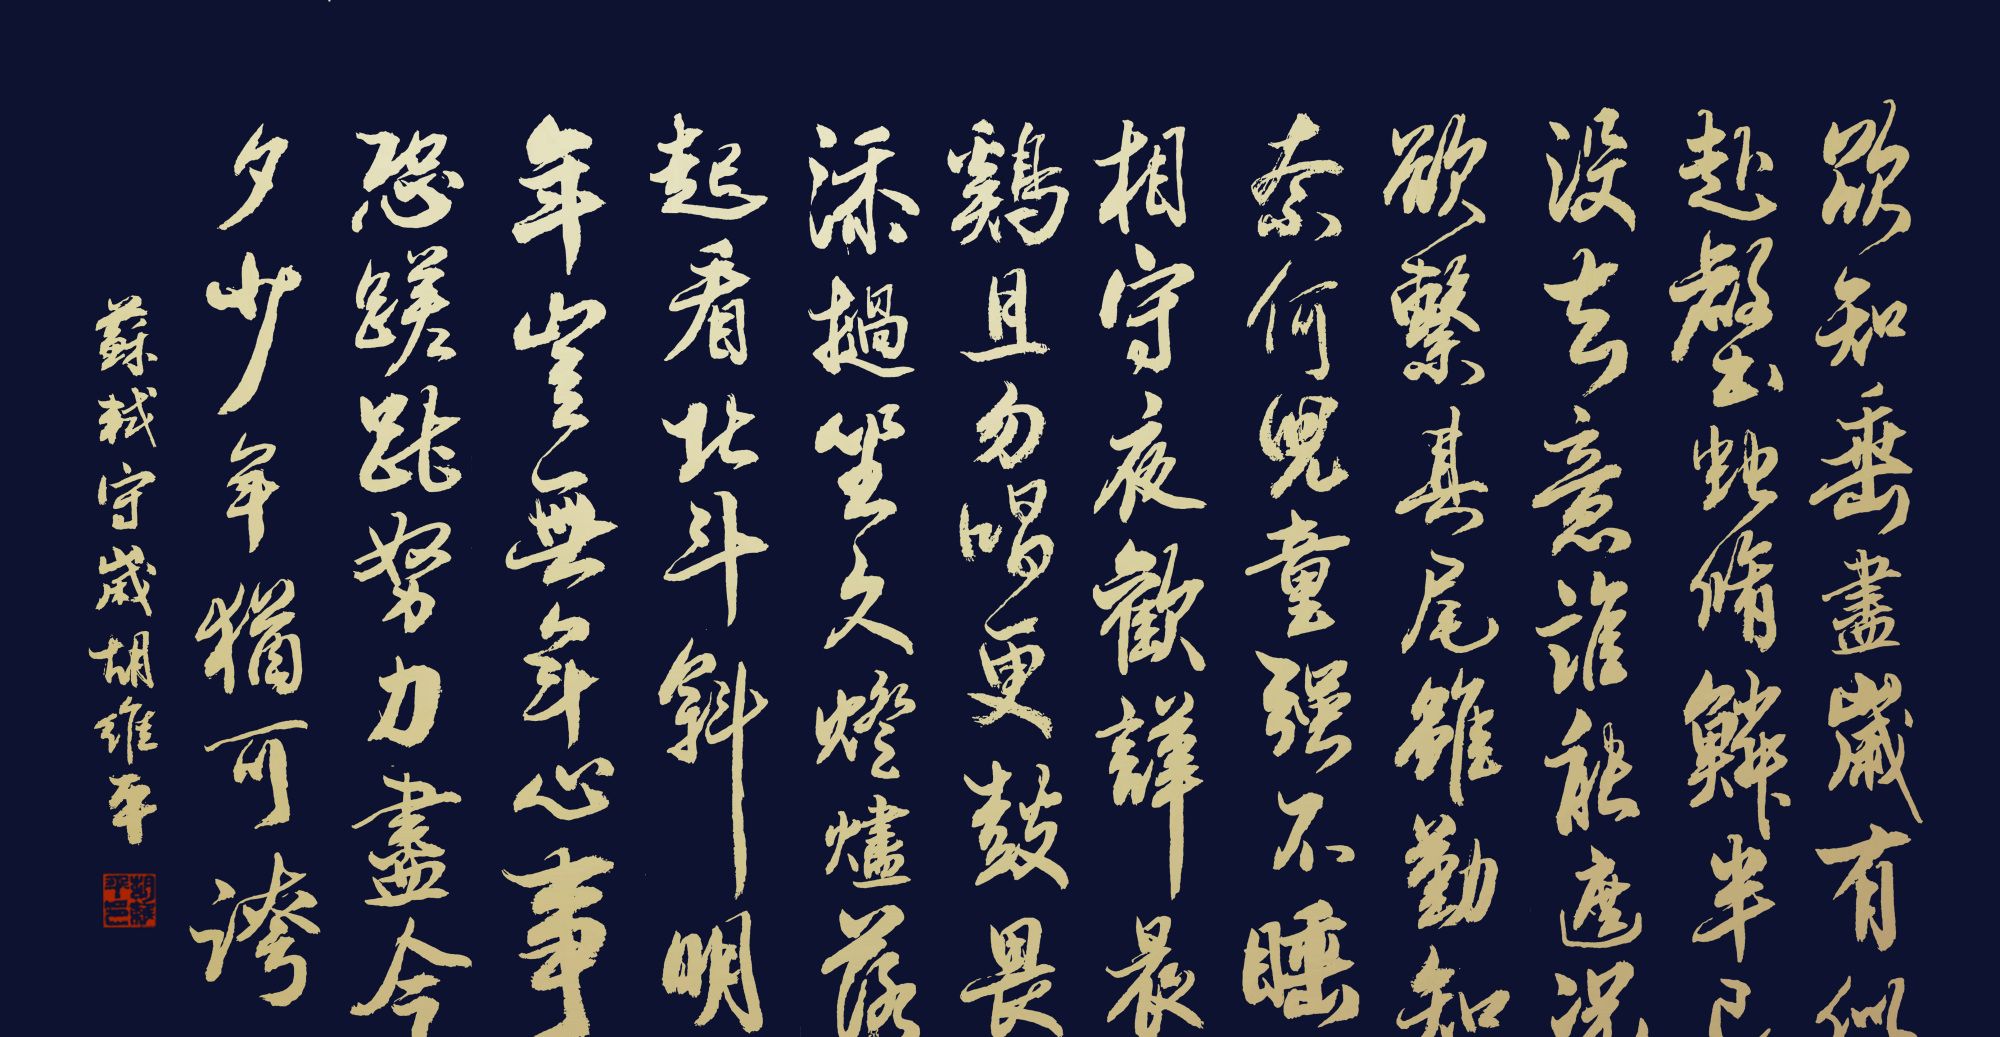 欲知垂盡歲有似
赴壑虵脩鱗半已
沒去意誰能遮況
欲繫其尾雖勤知
奈何兒童强不睡
相守夜歡譁晨
鷄且勿唱更鼓畏
添撾坐久燈燼落
起看北斗斜明
年豈無年心事
恐蹉跎努力盡今
夕少年猶可誇
蘇軾守歲胡維平
胡維平印